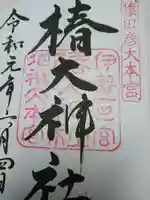 猿田彦大本宮
伊勢一宮
椿大神社
令和元年六月四日